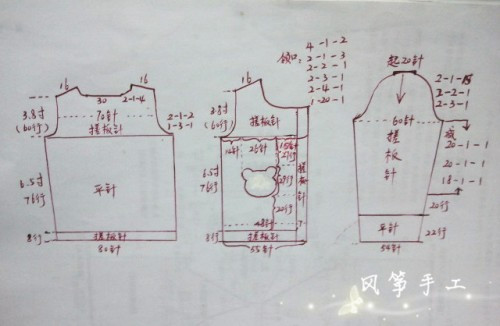 16
16
30
2-1-4
3.8寸
(60行)
70针
2-1-2
1-3-1
搓板针
6.5寸
76行
平针
8行
搓板针
80针
领口:
4-1-2
2-1-3
2-2-1
2-3-1
2-4-1
1-20-1
16
3.8寸
(60行)
搓板针
14针
26针
15针
27行
6.5寸
76行
搓板针
20行
48针
7
8行
搓板针
55针
起20针
2-2-1
2-3-1
60针
搓板针
减
20-1-1
20-1-1
18-1-1
20行
平针
22行
54针
风筝手工